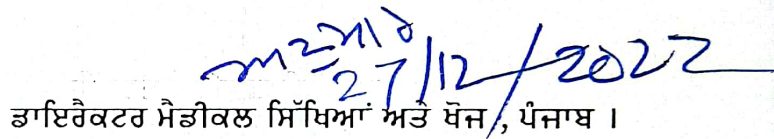 27/12/2022
ਡਾਇਰੈਕਟਰ ਮੈਡੀਕਲ ਸਿੱਖਿਆਂ ਅਤੇ ਖੋਜ, ਪੰਜਾਬ ।